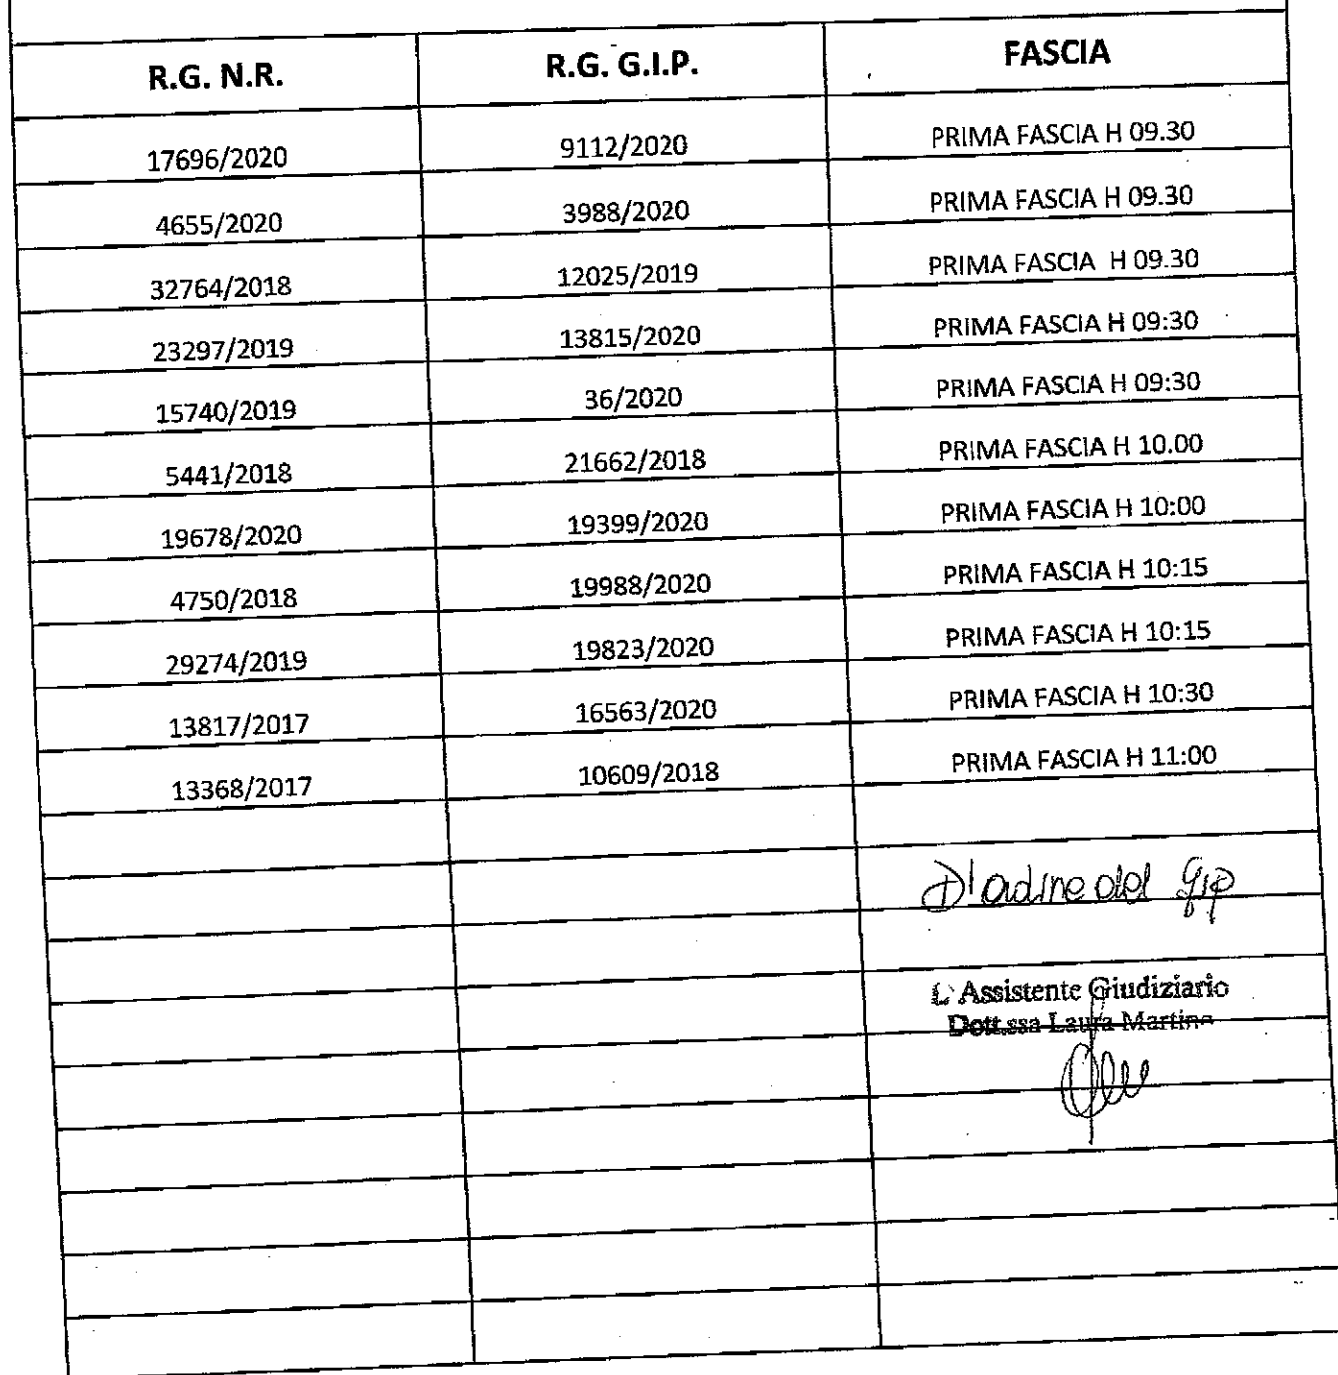 R.G. N.R. R.G. G.I.P. FASCIA
17696/2020 9112/2020 PRIMA FASCIA H 09.30
4655/2020 3988/2020 PRIMA FASCIA H 09.30
32764/2018 12025/2019 PRIMA FASCIA H 09.30
23297/2019 13815/2020 PRIMA FASCIA H 09:30
15740/2019 36/2020 PRIMA FASCIA H 09:30
5441/2018 21662/2018 PRIMA FASCIA H 10.00
19678/2020 19399/2020 PRIMA FASCIA H 10:00
4750/2018 19988/2020 PRIMA FASCIA H 10:15
29274/2019 19823/2020 PRIMA FASCIA H 10:15
13817/2017 16563/2020 PRIMA FASCIA H 10:30
13368/2017 10609/2018 PRIMA FASCIA H 11:00
D'ordine del Gip
L'Assistente Giudiziario
Dott.ssa Laura